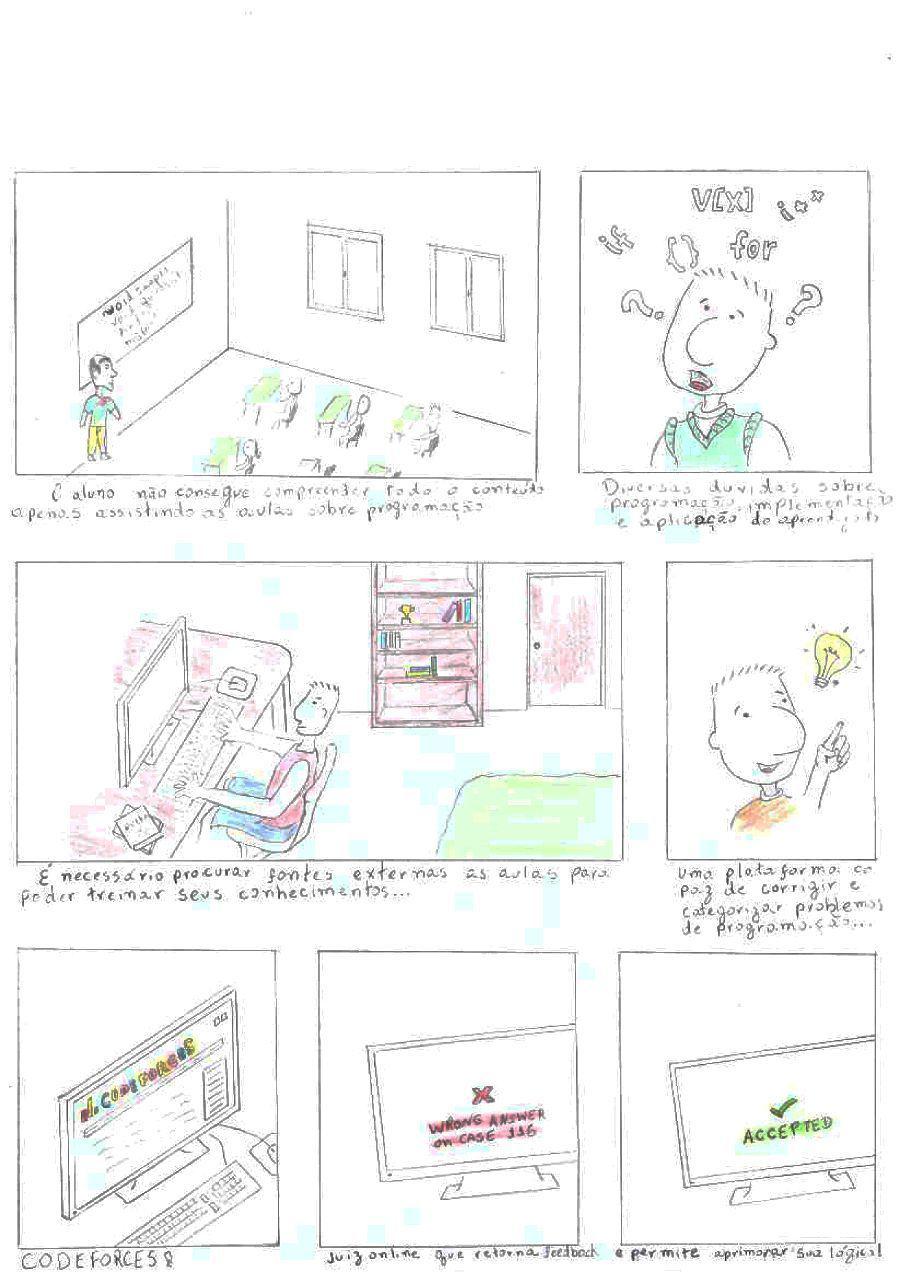 void
V[X]
i++
if
{}
for
?
?
O aluno não consegue compreender todo o conteúdo
apenas assistindo as aulas sobre programação
Diversas dúvidas sobre
programação, implementação
e aplicação do
É necessário procurar fontes externas as aulas para
poder treinar seus conhecimentos...
Uma plataforma ca
paz de corrigir e
categorizar problemas
de programação...
CODEFORCES
X
WRONG ANSWER
on CASE 116
✓
ACCEPTED
CODEFORCES
Juiz online que retorna feedback
e permite aprimorar sua lógica!